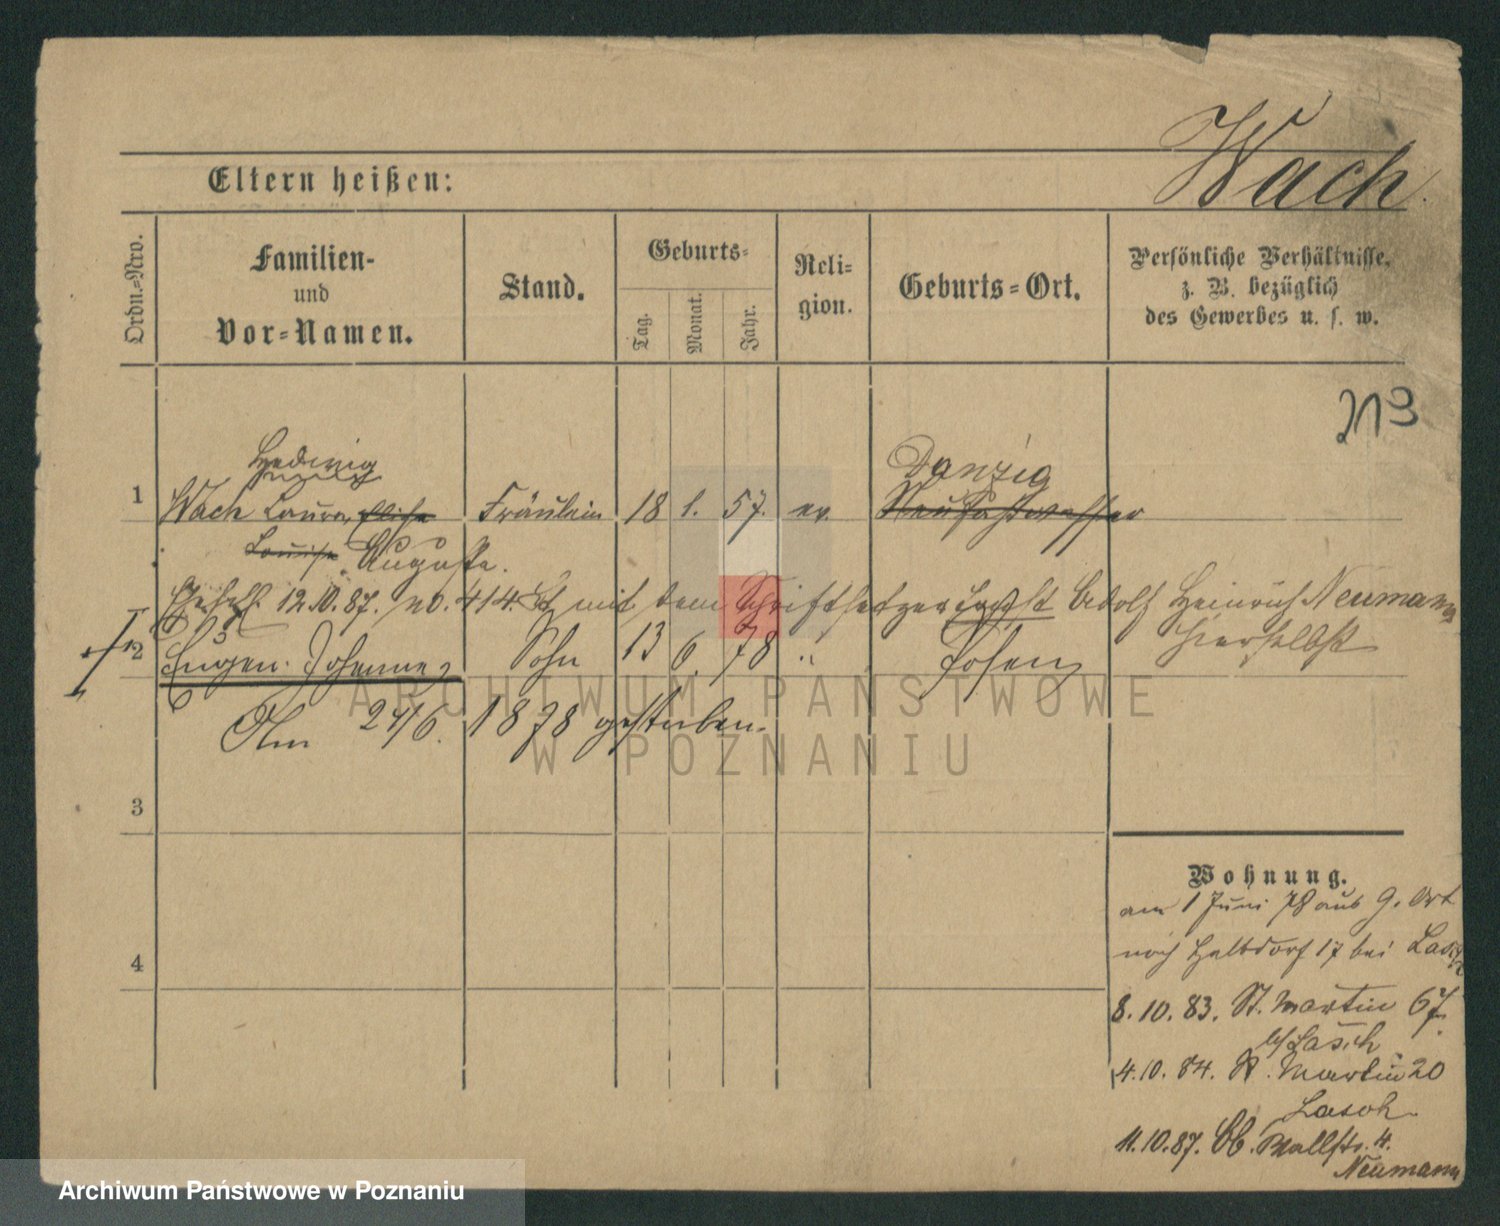 Wach
Eltern heißen:
Ordn.-Nro.
Familien-
und
Vor-Namen.
Stand.
Geburts-
Tag.
Monat.
Jahr.
Reli-
gion.
Geburts-Ort.
Persönliche Verhältnisse,
z. B. bezüglich
des Gewerbes u. s. w.
213
Hedwig
Danzig
1 Wach Laura, Elise Fräulein 18 1. 57. ev. Neufahrwasser
Louise Auguste.
Ehesch. 12.10.87. no. 414. mit dem Schriftsetzer August Adolf Heinrich Neumann
hierselbst
2 Eugen Johannes Sohn 13 6. 78 " Posen
Am 24/6. 1878 gestorben.
ARCHIWUM PAŃSTWOWE
W POZNANIU
3
4
Wohnung.
am 1 Juni 78 aus G. Ort
nach Halbdorf 17 bei Lasch
8.10.83. St. Martin 67.
b/ Lasch
4.10.84. St. Martin 20
Lasch
11.10.87. Ob. Wallstr. 4.
Neumann
Archiwum Państwowe w Poznaniu